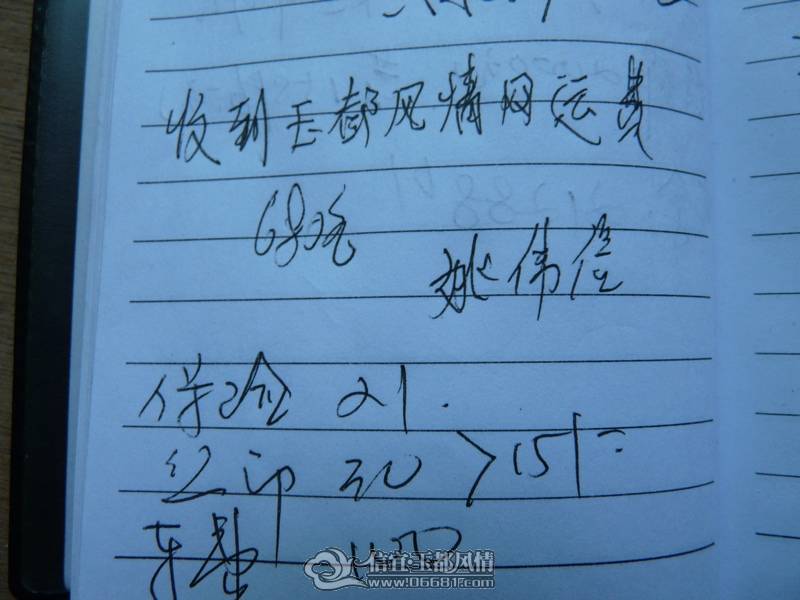 收到玉都风情网运费
680元
姚伟信
保险 21.
红印 30 > 151
车费 100
信宜玉都风情
www.06681.com